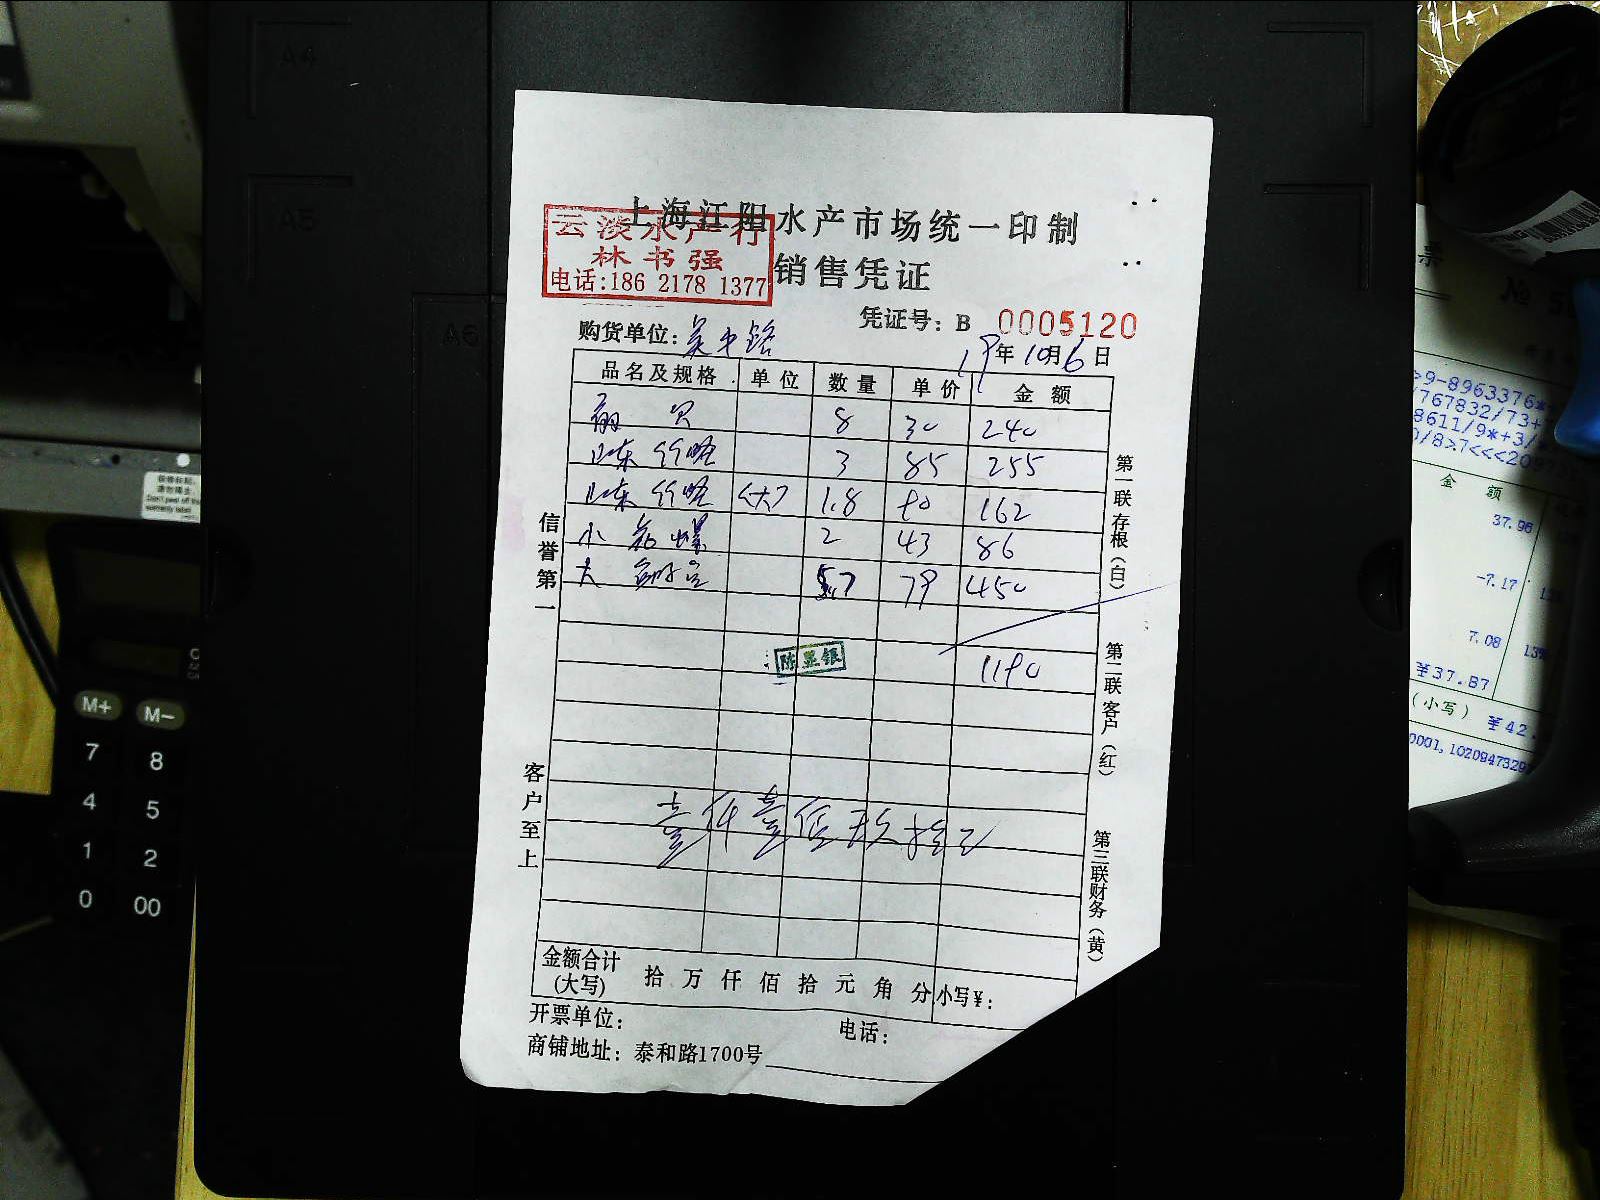 A4
A5
A6
上海江阳水产市场统一印制
云淡水产行
林书强
电话:186 2178 1377
销售凭证
凭证号: B 0005120
购货单位: 吴中路
19年10月6日
品名及规格 单位 数量 单价 金额
8 30 240
山东竹蛏 3 85 255
山东竹蛏 <大> 1.8 90 162
小花螺 2 43 86
大 5.7 79 450
1190
壹仟壹佰玖拾元
信誉第一
客户至上
第一联存根(白)
第二联客户(红)
第三联财务(黄)
金额合计
(大写)
拾 万 仟 佰 拾 元 角 分 小写¥:
开票单位:
电话:
商铺地址: 泰和路1700号
M+ M-
7 8
4 5
1 2
0 00
票
№ 5
>9-8963376*
/767832/73+
8611/9*+3/
0/8>7<<<209
金 额
37.96
-7.17
7.08
13%
¥37.87
(小写) ¥42.
0001,1020947329